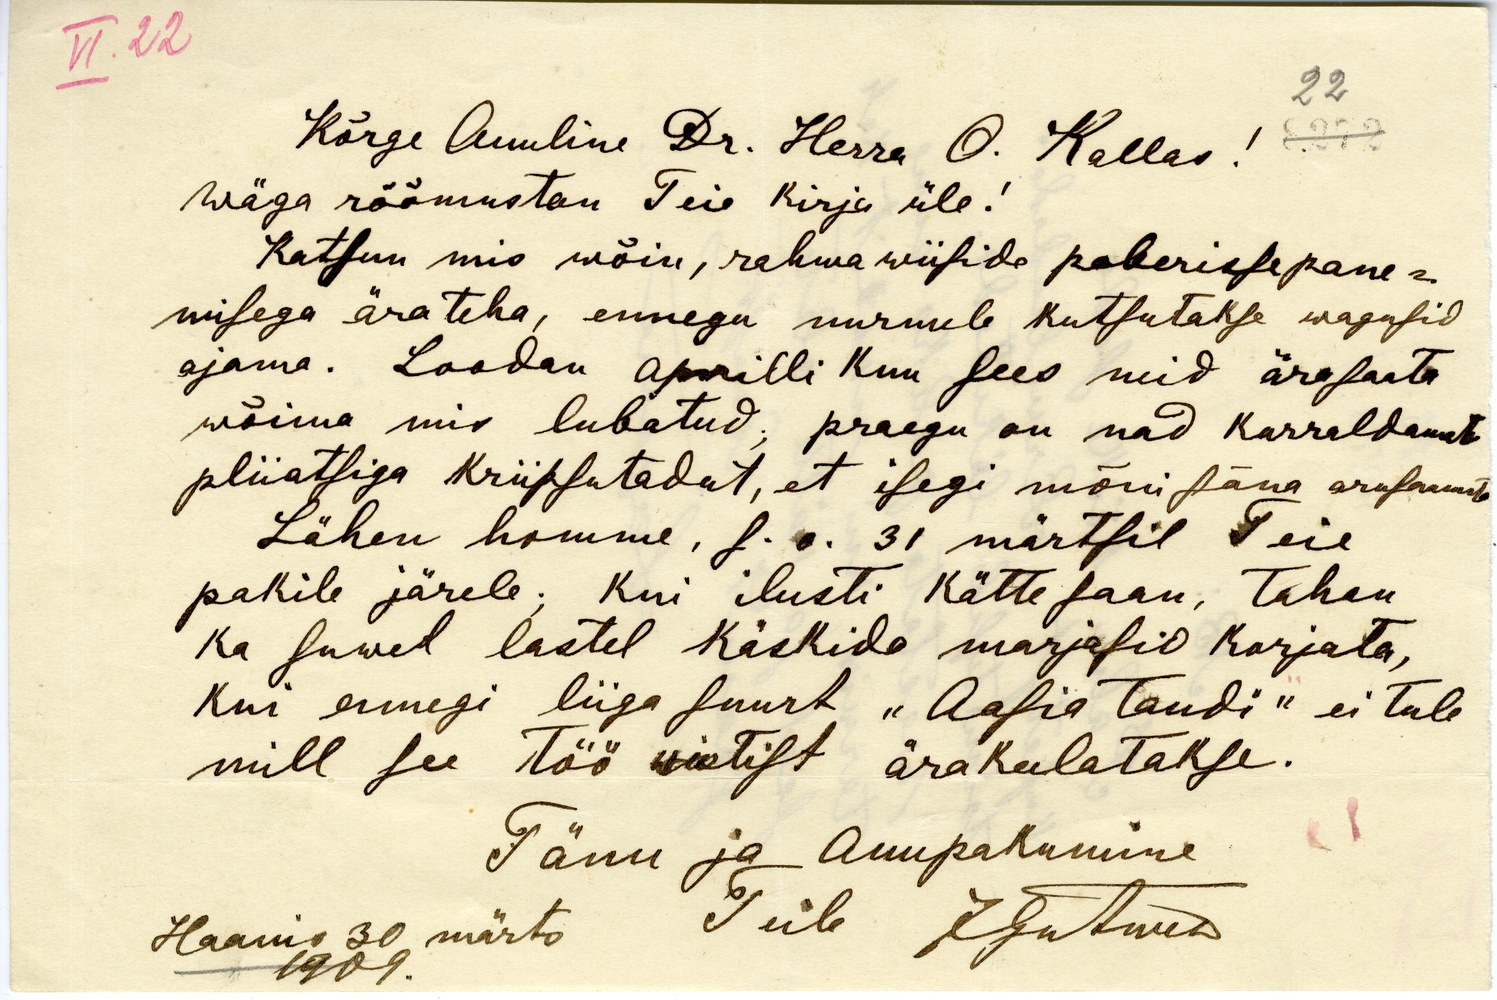 VI. 22
22
Kõrge Auuline Dr. Herra O. Kallas!
Wäga rõõmustan Teie kirja üle!
Katsun mis wõin, rahwawiiside paberissepane=
misega ärateha, ennegu nurmele kutsutakse wagusid
ajama. Loodan aprilli kuu sees neid ärasaata
wõima mis lubatud; praegu on nad karraldamata
pliiatsiga kriipsutadut, et isegi mõni säna arusaamata
Lähen homme, s. o. 31 märtsil Teie
pakile järele; kui ilusti kätte saan, tahan
ka suwel lastel käskida marjasid korjata,
kui ennegi liiga suurt „Aasia taudi" ei tule
mill see töö wistist ärakeelatakse.
Tänu ja Auupakumine
Teile
Haanis 30 märts
1909.